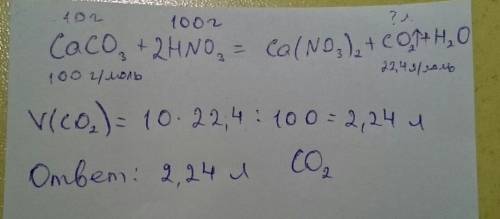 10г 100г ? л
CaCO₃ + 2HNO₃ = Ca(NO₃)₂ + CO₂↑ + H₂O
100 г/моль 22,4 л/моль
V(CO₂) = 10 · 22,4 : 100 = 2,24 л
Ответ: 2,24 л CO₂